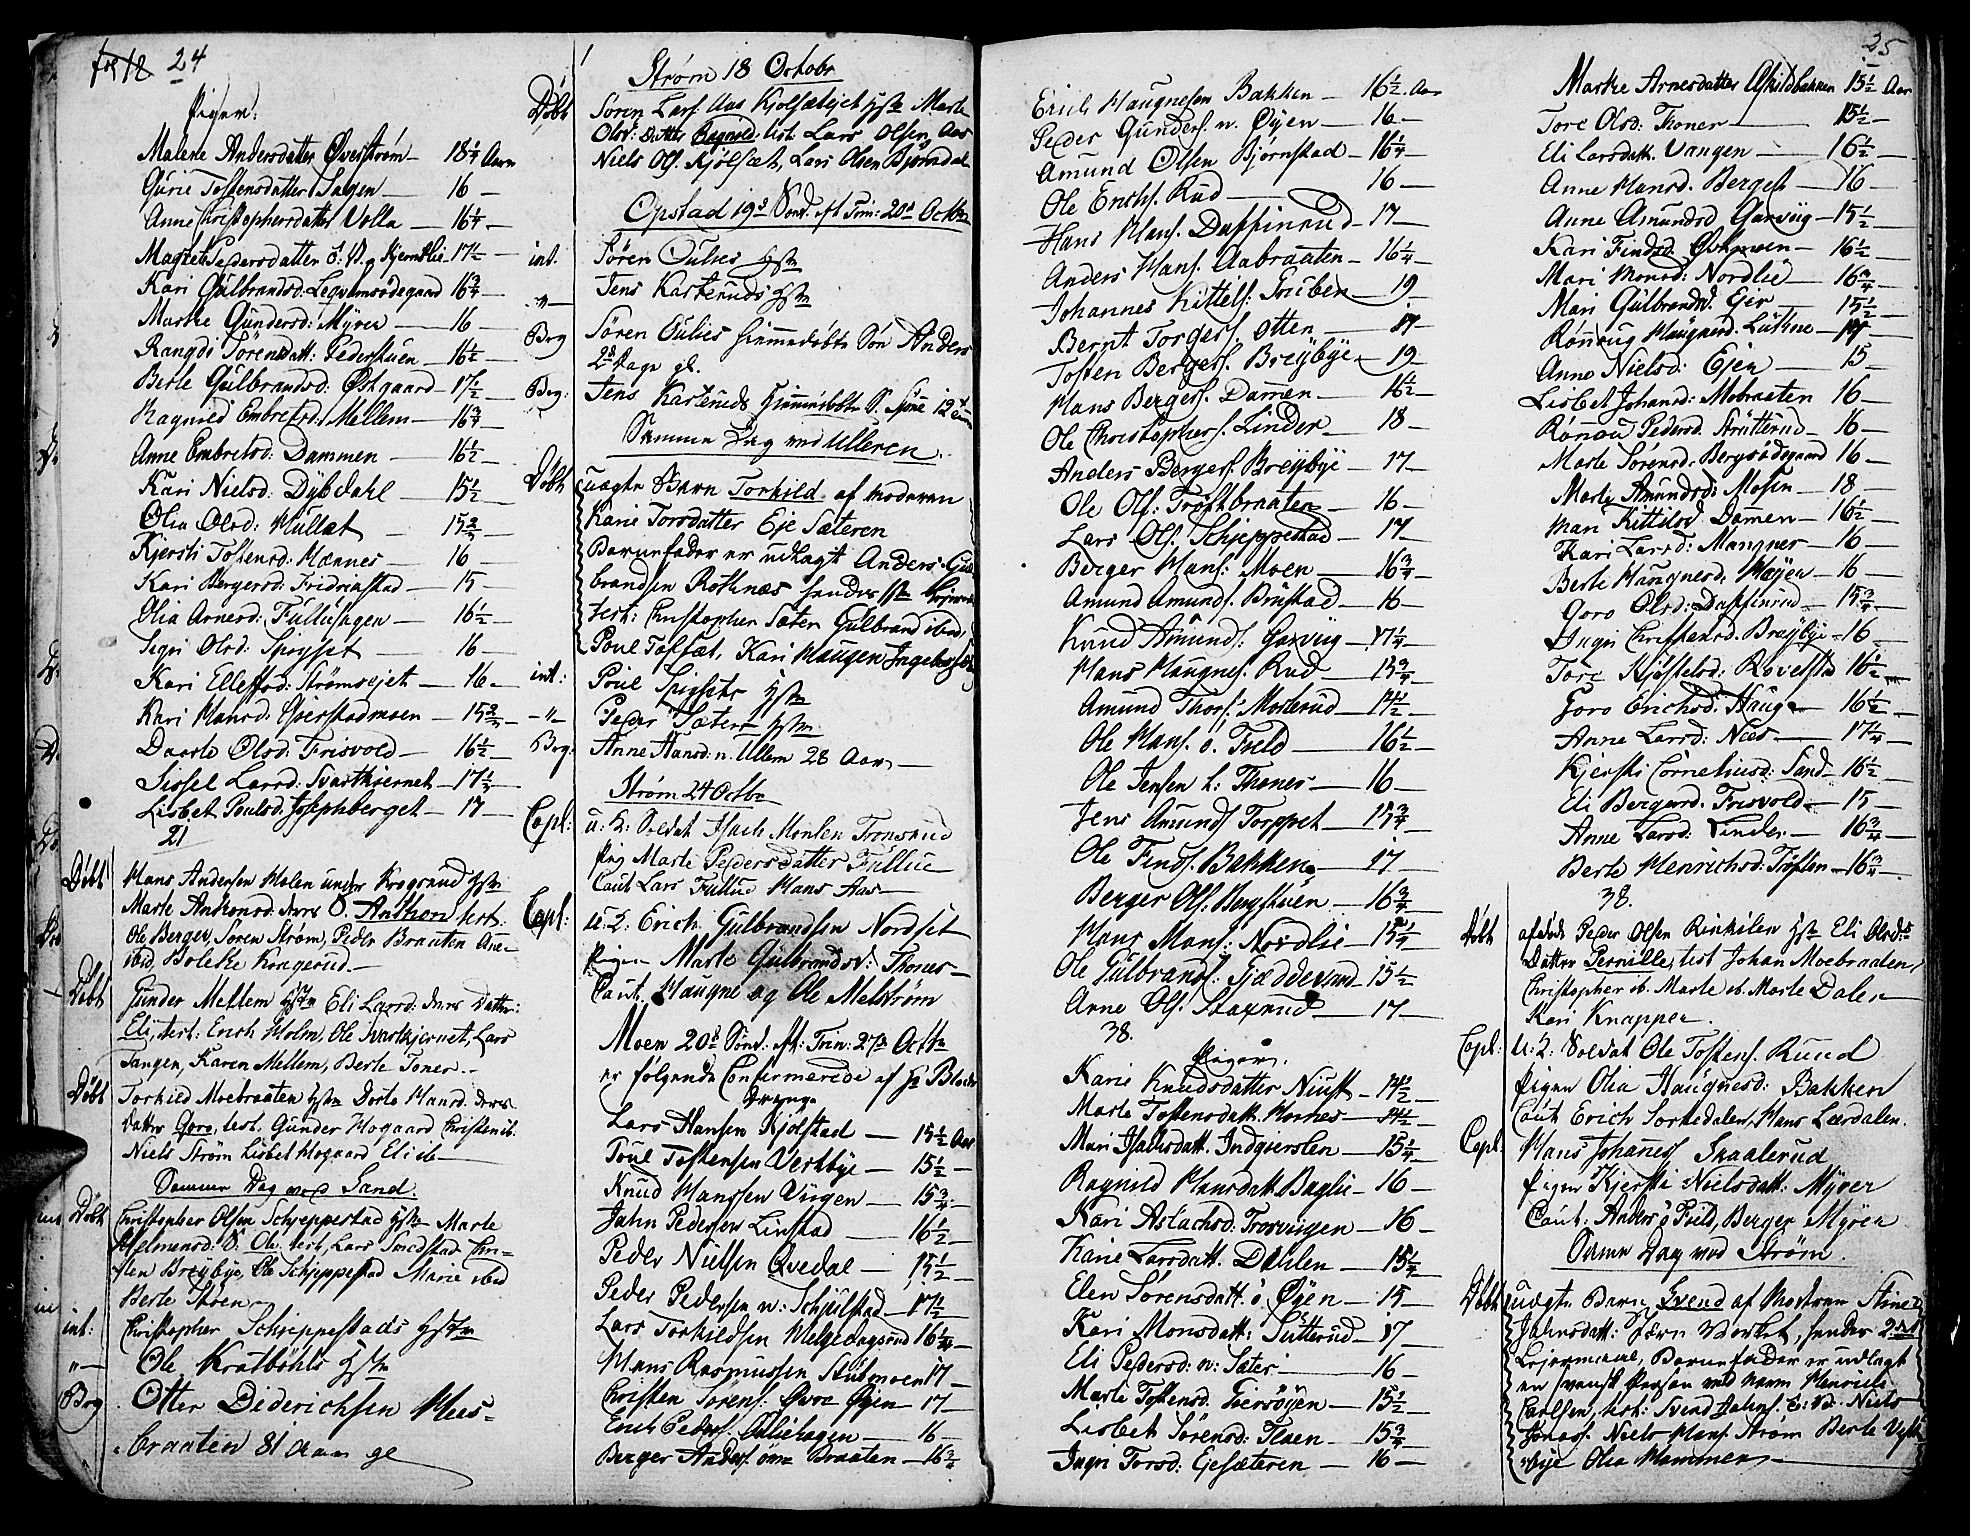 24
Piger.
Malene Andersdatter Øverstrøm — 18 1/4 Aar
Gurie Tostensdatter Hagen — 16 —
Anne Christophersdatter Volla — 16 1/4 —
Magrete Pedersdatter
Kari Gulbrandsd: Legvamsødegaard 16 3/4 —
Marthe Gundersd: Myrer — 16 —
Rangdi Sørensdatt: Pederstuen — 16 1/2 —
Berte Gulbrandsd: Østgaard — 17 1/2 —
Ragnild Embretsd: Mellem — 16 3/4 —
Anne Embretsd: Dammen — 16 1/2 —
Kari Nielsd: Dybdahl — 15 1/2 —
Olia Olsd:
Kjersti Tostensd: Hænnes — 16 —
Kari Bergersd: Fridrichstad — 15 —
Olia Arnesd: Fulluhagen — 16 1/2 —
Sigri Olsd: Spigset — 16 —
Kari Ellefsd: Strømsejet — 16 —
Kari Hansd:
Dorte Olsd: Frisvold — 16 1/2 —
Sissel Larsd: Svartkiernet — 17 1/2 —
Lisbet Poulsd: Josephberget — 17 —
21
Døbt Hans Andersen Molen under Krogsrud Hstr
Marte Anthonsd: deres S. Anthon test:
Ole Berger, Søren Strøm, Peder Braaten Ane
ibid, Boleke Krogsrud —
Døbt Gunder Mellem Hstr Eli Larsd: deres Datter:
Eli, test: Erich Holm, Ole Svartkjernet, Lars
Tangen, Karen Mellem, Berte Toner —
Døbt Torkild Moebraaten Hstr Dorte Hansd. deres
Datter Goro, test. Gunder Hogaard Christen ib.
Niels Strøm Lisbet Hogaard Eli ib —
Samme Dag ved Sand.
Døbt Christopher Olsen Schjeppestad Hstr Marte
S. Ole test, Lars Smedstad Chri-
sten Breybye, Ole Schjeppestad Marie ibid
Berte Støen
int: Christopher Schjeppestads Hstr
"— Ole Kratbøhls Hstr
Brg Otter Diderichsen Mees-
braaten 81 Aar gl
Strøm 18 Octobr
Døbt Søren Lars. Aas Kjølsætejet Hstr Marte
Olsd: Datter Ragnild, test. Lars Olsen Aas
Niels Ols. Kjølsæt, Lars Olsen Bjørndal
Opstad 19d Sønd. Aft Trin: 20d Octbr
int. Søren Oulies Hstr
"— Jens Kasteruds Hstr
Brg Søren Oulies hiemmedøbte Søn Anders
2 Dage gl.
Brg: Jens Kasteruds hiemmedøbte S.
Samme Dag ved Ulleren.
Døbt uægte Barn Torkild af moderen
Karie Torsdatter Eje Sæteren
Barnefader er udlagt Anders Gul-
brandsen Rotnæs hendes 1ste Leiermaal
test: Christopher Sæter Gulbrand ibid,
Poul Tofsæt, Kari Haugen Ingeborg
int: Poul Spigsets Hstr
"— Peder Sæters Hstr
Brg: Anne Hansd. n. Ullern 28 Aar —
Strøm 24 Octbr
Copl: U: K: Soldat Isach Monsen Tronsrud
Pig Marte Pedersdatter Fullue
Caut Lars Fullue Hans Aas —
Copl: U: K: Erich Gulbrandsen Nordset
Pigen Marte Gulbrandsd: Thones —
Caut. Haugne og Ole Melstrøm
Moen 20d Sønd. Aft: Trin: 27de Octbr
er følgende Confirmerede af Hr Bloch
Drenge
Lars Hansen Kjølstad — 15 1/2 Aar
Poul Tostensen Verkbye — 15 1/2 —
Knud Hanssen Viigen — 15 3/4 —
Jahn Pedersen Linstad — 16 1/2 —
Peder Nielsen Qvedal — 15 1/2 —
Peder Pedersen n: Schjulstad — 17 1/2
Lars Torkildsen Helgedagsrud 16 1/4 —
Hans Rasmussen Stubmoen 17 —
Christen Sørens: Øvre Øyen — 17 —
Erich Peders. Olliehagen — 16 —
Berger Anders. øvre Braaten — 16 3/4
Erich Haugnesen Bakken — 16 1/2 Aar
Peder Gunders. n. Øyen — 16 —
Amund Olsen Bjørnstad — 16 1/4 —
Ole Erichs. Rud — 16 —
Hans Hans. Daffinrud — 17 —
Anders Hans. Aabraaten — 16 1/4 —
Johannes Kittels: Gruben — 19
Bernt Torgers. Otten — 17 —
Tosten Bergers. Breybye — 19 —
Hans Bergers. Dammen — 16 1/2 —
Ole Christophers. Linder — 18 —
Anders Bergers. Breybye — 17 —
Ole Ols: Trøstbraaten — 16 —
Lars Ols. Schjeppestad — 17 —
Berger Hans: Moen — 16 3/4 —
Amund Amunds. Brustad — 16 —
Knud Amunds: Garviig — 17 1/4 —
Hans Haugnes. Rud — 15 3/4 —
Amund Thors: Mosterud — 14 1/2 —
Ole Hans. ö. Tveld — 16 1/2 —
Ole Jensen h: Thoner — 16 —
Jens Amunds. Torppet — 15 3/4 —
Ole Finds. Bakken — 17 —
Berger Ols. Bergstuen — 16 3/4 —
Hans Hans: Nordlie — 15 1/4 —
Ole Gulbrands. Fjæddersrud 15 1/2
Arne Ols. Starrud — 17 —
38.
Piger.
Karie Knudsdatter Niust — 14 1/2 —
Marte Tostensdatt. — 14 1/2 —
Mari Isachsdatt. Indgierslen — 15 1/4 —
Ragnild Hansdatt. Bagli — 16 —
Kari Aslachsd: Trosvigen — 16 —
Karie Larsdatt. Dahlen — 15 1/4 —
Elen Sørensdatt: ö Øyen — 15 —
Kari Monsdatt: Sutterud — 17 —
Eli Pedersd: n: Sæter — 16 —
Marte Tostensd. — 15 1/2 —
Lisbet Sørensd: Floen — 15 3/4 —
Ingri Torsd: Ejesæteren — 16 —
25
Marthe Arnesdatter Eskildsbakken 15 1/2 Aar
Tore Olsd: Thoner — 15 1/2 —
Eli Larsdatt. Vangen — 16 1/2 —
Anne Hansd. Berget — 16 —
Anne Amundsd Garviig — 15 1/2
Kari Findsd. — 16 1/2 —
Mari Monsd: Nordlie — 16 3/4 —
Mari Gulbrandsd. Ejer — 15 1/2 —
Rønnoug Haugnesd. Lutkne
Anne Nielsd: Ejen — 15 —
Lisbet Johansd: Mobraaten 16 —
Rønnou Pedersd. Strutterud — 16 —
Marte Sørensd. Bergsødegaard 16 —
Marte Amundsd: Mosen — 18 —
Mari Kittilsd. Dammen — 16 1/2 —
Kari Larsd: — 16 —
Berte Haugnesd. Høyer — 16 —
Goro Olsd: Daffinrud — 15 3/4 —
Ingri Christensd. Breybye — 16 —
Tore Kjøstelsd: 16 1/2 —
Goro Erichsd. Haug — 16 1/2 —
Anne Larsd: Næs — 17 1/4 —
Kjersti Corneliusd: Sand — 16 1/2 —
Eli Bergersd. Frisvold — 15 —
Anne Larsd: Linder — 16 3/4 —
Berte Henrichsd: — 16 3/4 —
38.
Døbt afdøde Peder Olsen Rinkilen Hstr Eli Olsd:s
Datter Pernille, test Johan Moebraaten,
Christopher ib. Marte ib. Marte Dalen
Kari Knapper.
Copl: U: K: Soldat Ole Tostens. Ruud
Pigen Olia Haugnesd: Bakken
Caut Erich Sorkedalen, Hans Lærdalen.
Copl. Hans Johanes. Skaalerud
Pigen Kjersti Nielsdatt: Myrer
Caut: Anders ö Tveld, Berger Myrer
Samme Dag ved Strøm.
Døbt uægte Barn Svend af Moderen Stine
Jahnsdatt: Jærn Verket, hendes 2det
Leiermaal, Barnefader er udlagt
en svensk Person ved Navn Henrich
Carlsen, test: Svend Jahns. E: W. Niels
Jonas. Niels Hans. Strøm Berte
Olia Hammer —